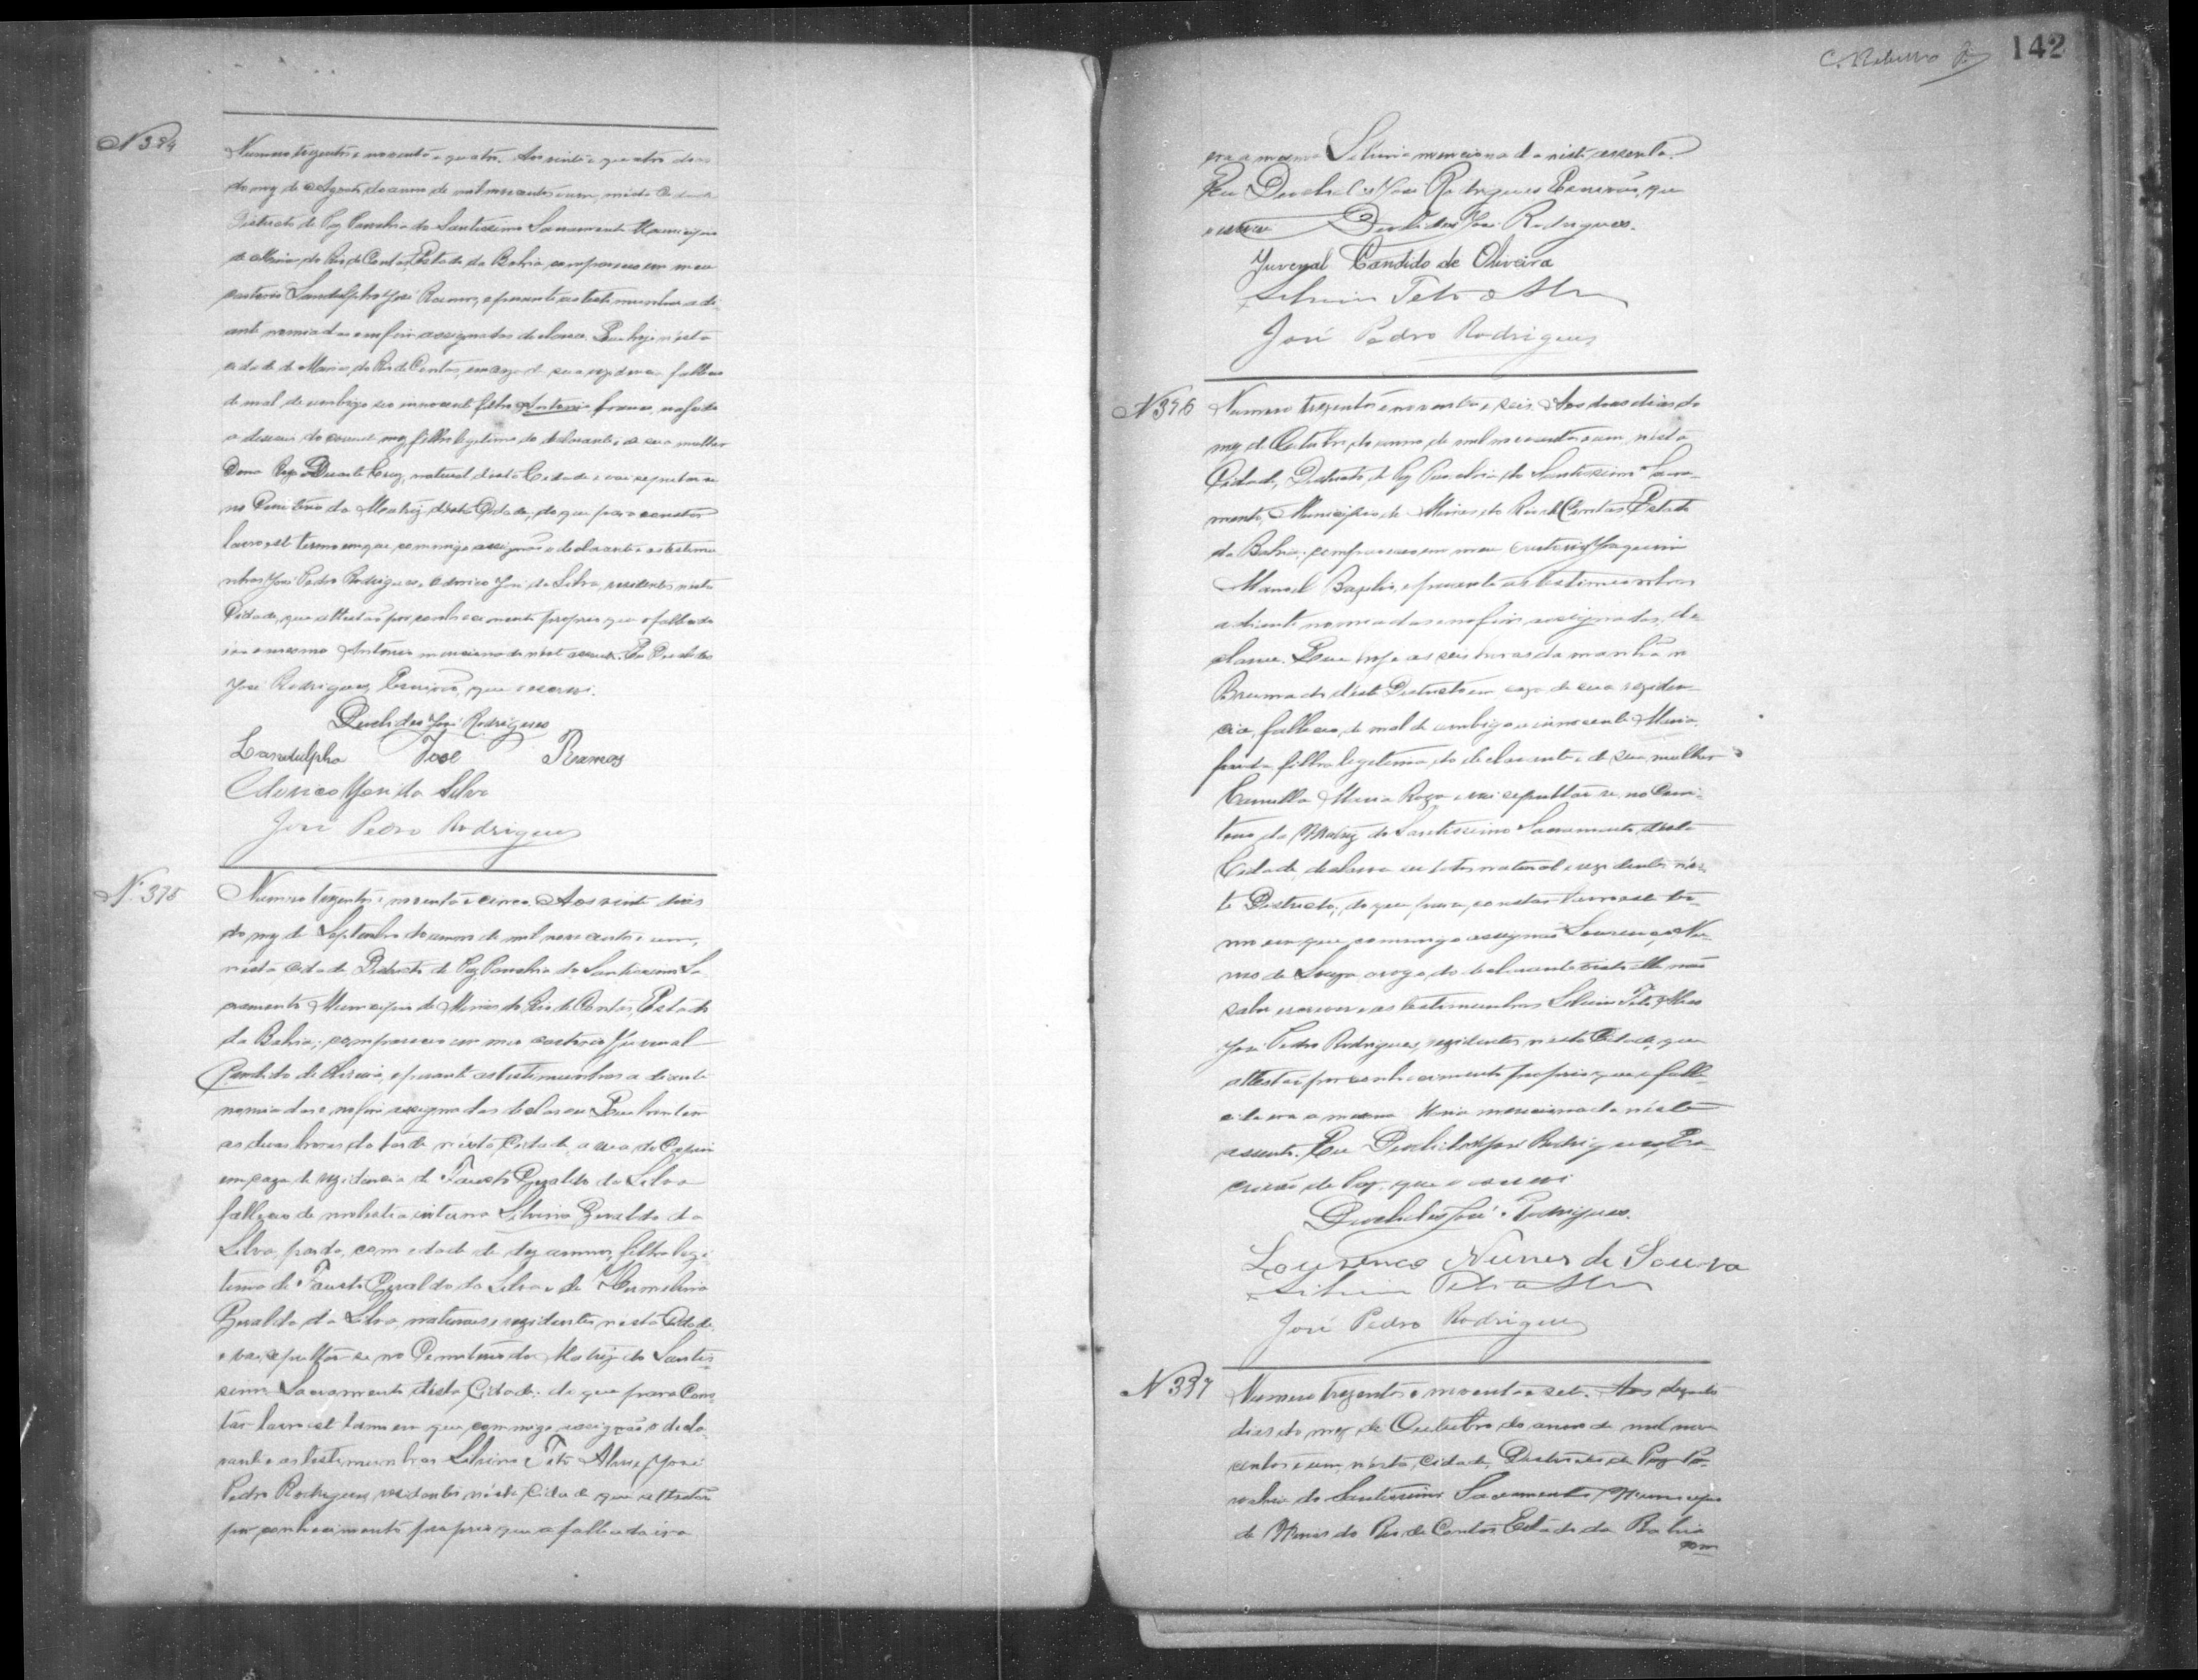 N 394
Numero trezentos e noventa e quatro. Aos vinte e quatro dias
do mez de Agosto do anno de mil novecentos e um, nésta Cidade
Districto de Paz Parochia do Santissimo Sacramento Municipio
de Minas do Rio de Contas, Estado da Bahia, compareceu em meu
cartorio Landulpho José Ramos, e perante as testemunhas adi-
ante nomiadas e no fim assignadas declarou: Que hoje nésta
cidade de Minas do Rio de Contas, em caza de sua rezidencia falleceu
de mal de umbigo seo innocente filho Antonio branco, nascido
a deseseis do corrente mez, filho legitimo do declarante e de sua mulher
Dona Duarte Cruz, natural desta Cidade e vai sepultar-se
no Cemiterio da Matriz désta Cidade; do que para constar
lavro este termo em que commigo assignão o declarante e as testemu-
nhas José Pedro Rodrigues e Odorico José da Silva, residentes nesta
Cidade, que attestão por conhecimento proprio que o fallecido
éra o mesmo Antonio mencionado néste assento. Eu Euclides
José Rodrigues Escrivão, que o escrevi.
Euclides José Rodrigues
Landulpho José Ramos
Odorico José da Silva
José Pedro Rodrigues
N. 395
Numero trezentos e noventa e cinco. Aos vinte dias
do mez de Septembro do anno de mil novecentos e um,
nésta cidade Districto de Paz Parochia do Santissimo Sa-
cramento Municipio de Minas do Rio de Contas, Estado
da Bahia; compareceu em meu cartorio Juvenal
Candido de Oliveira, e perante as testemunhas adiante
nomiadas e no fim assignadas declarou: Que hontem
as duas horas da tarde nésta Cidade, a rua do
em caza de rezidencia de Fausto Geraldo da Silva
falleceu de molestia interna Silvina Geraldo da
Silva, parda, com edade de dez annos, filha legi-
tima de Fausto Geraldo da Silva e de
Geraldo da Silva, naturaes e rezidentes nesta Cidade,
e vai sepultar-se no Cemiterio da Matriz do Santis-
simo Sacramento désta Cidade: do que para Cons-
tar lavro este termo em que commigo assignão o decla-
rante e as testemunhas Silvino Tito Alves e José
Pedro Rodrigues, residentes nésta Cidade que attestão
por conhecimento proprio que a fallecida era
C. 142
era a mesma Silvina mencionada néste assento.
Eu Euclides José Rodrigues Escrivão, que
o escrevi Euclides José Rodrigues.
Juvenal Candido de Oliveira
Silvino Tito Alves
José Pedro Rodrigues
N 396
Numero trezentos e noventa e seis. Aos doze dias do
mez de Outubro do anno de mil novecentos e um, nésta
Cidade, Districto de Paz Parochia do Santissimo Sacra-
mento, Municipio de Minas do Rio de Contas Estado
da Bahia; compareceu em meu cartorio Joaquim
Manoel Bazilio, e perante as testemunhas
adiante nomiadas e no fim assignadas, de-
clarou: Que hoje as seis horas da manhã n
Brumado déste Districto em caza de sua reziden-
cia, falleceu, de mal de umbigo a innocente Maria,
parda, filha legitima do declarante e de sua mulher
Camilla Maria Roza e vai sepultar-se no Cemi-
terio da Matriz do Santissimo Sacramento désta
Cidade, declarou ser natural e rezidente nés-
te Districto; do que para constar lavro este ter-
mo em que commigo assignão Lourenço Nu-
nes de Souza a rogo do declarante visto elle não
saber escrever e as testemunhas Silvino Tito Alves
José Pedro Rodrigues, rezidentes nésta Cidade, que
attestão por conhecimento proprio que a falle-
cida era a mesma Maria mencionada néste
assento. Eu Euclides José Rodrigues, Es-
crivão de Paz, que o escrevi
Euclides José Rodrigues.
Lourenço Nunes de Souza
Silvino Tito Alves
José Pedro Rodrigues
N 397
Numero trezentos e noventa e sete. Aos dezoito
dias do mez de Outubro do anno de mil nove
centos e um, nésta Cidade, Districto de Paz Pa-
rochia do Santissimo Sacramento, Municipio
de Minas do Rio de Contas Estado da Bahia
com